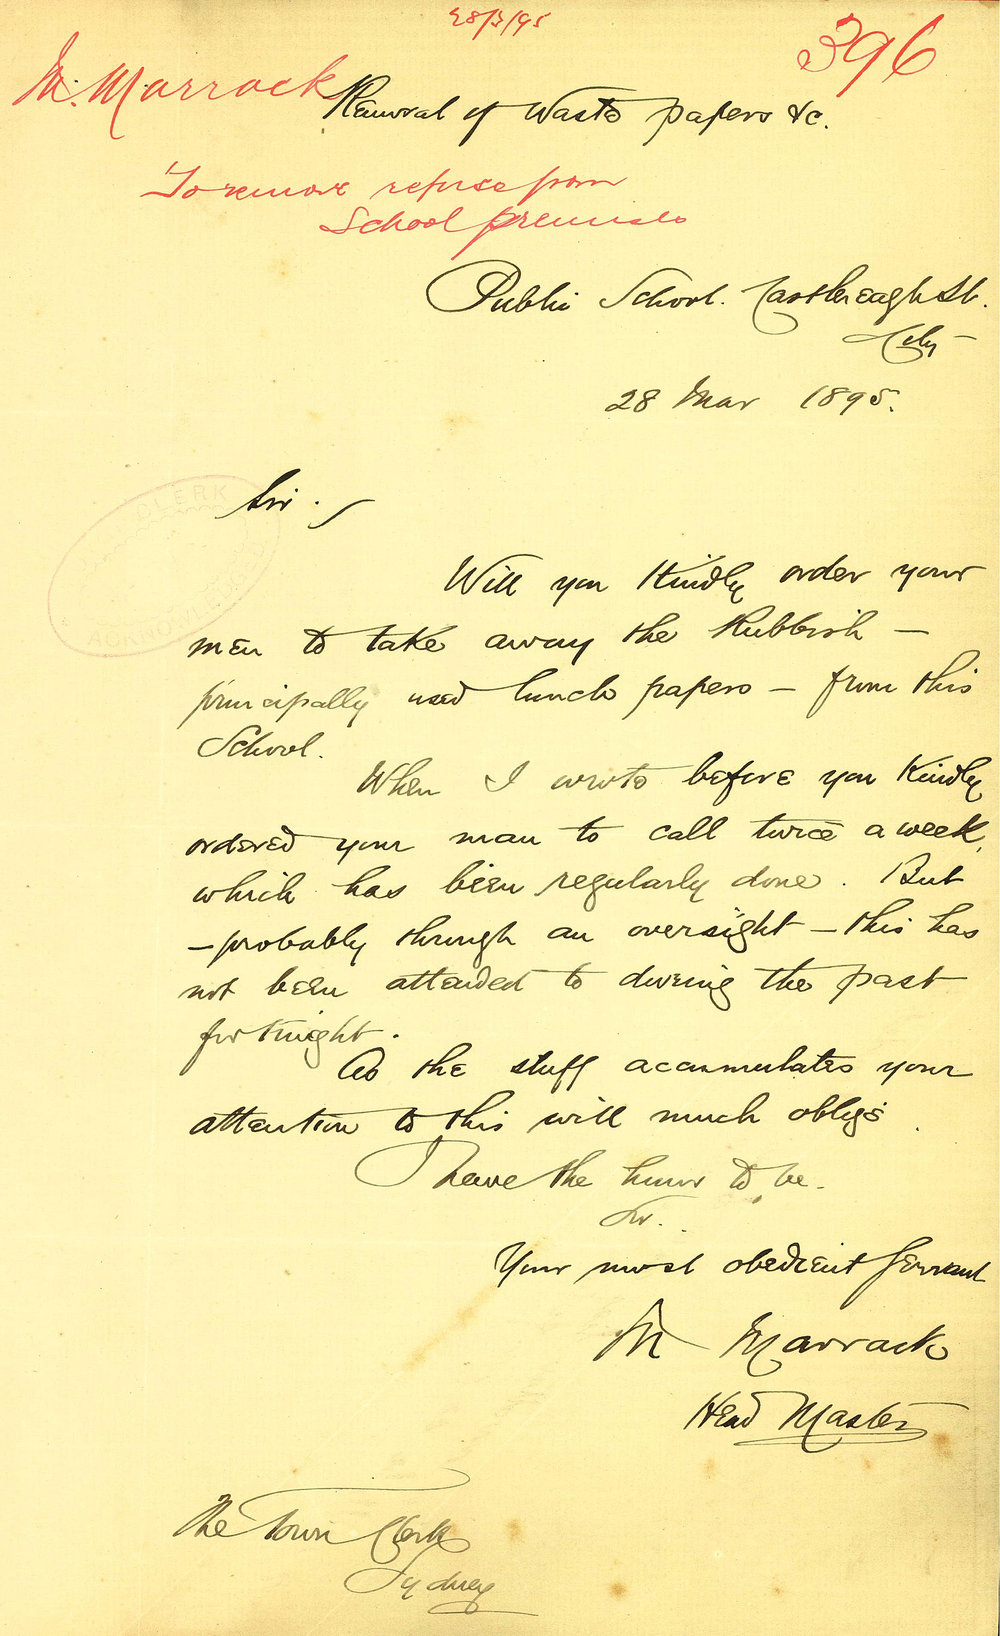 28/3/95
396
M. Marrack
Removal of Waste papers &c.
To remove refuse from
School premises
Public School. Castlereagh St.
City
28 Mar 1895.
CLERK
Sir.
Will you Kindly order your
men to take away the Rubbish —
principally used lunch papers — from this
School.
When I wrote before you Kindly
ordered your man to call twice a week,
which has been regularly done. But
— probably through an oversight — this has
not been attended to during the past
fortnight.
As the stuff accumulates your
attention to this will much oblige
I have the honor to be.
Sir.
Your most obedient Servant
M Marrack
Head Master
The Town Clerk
Sydney